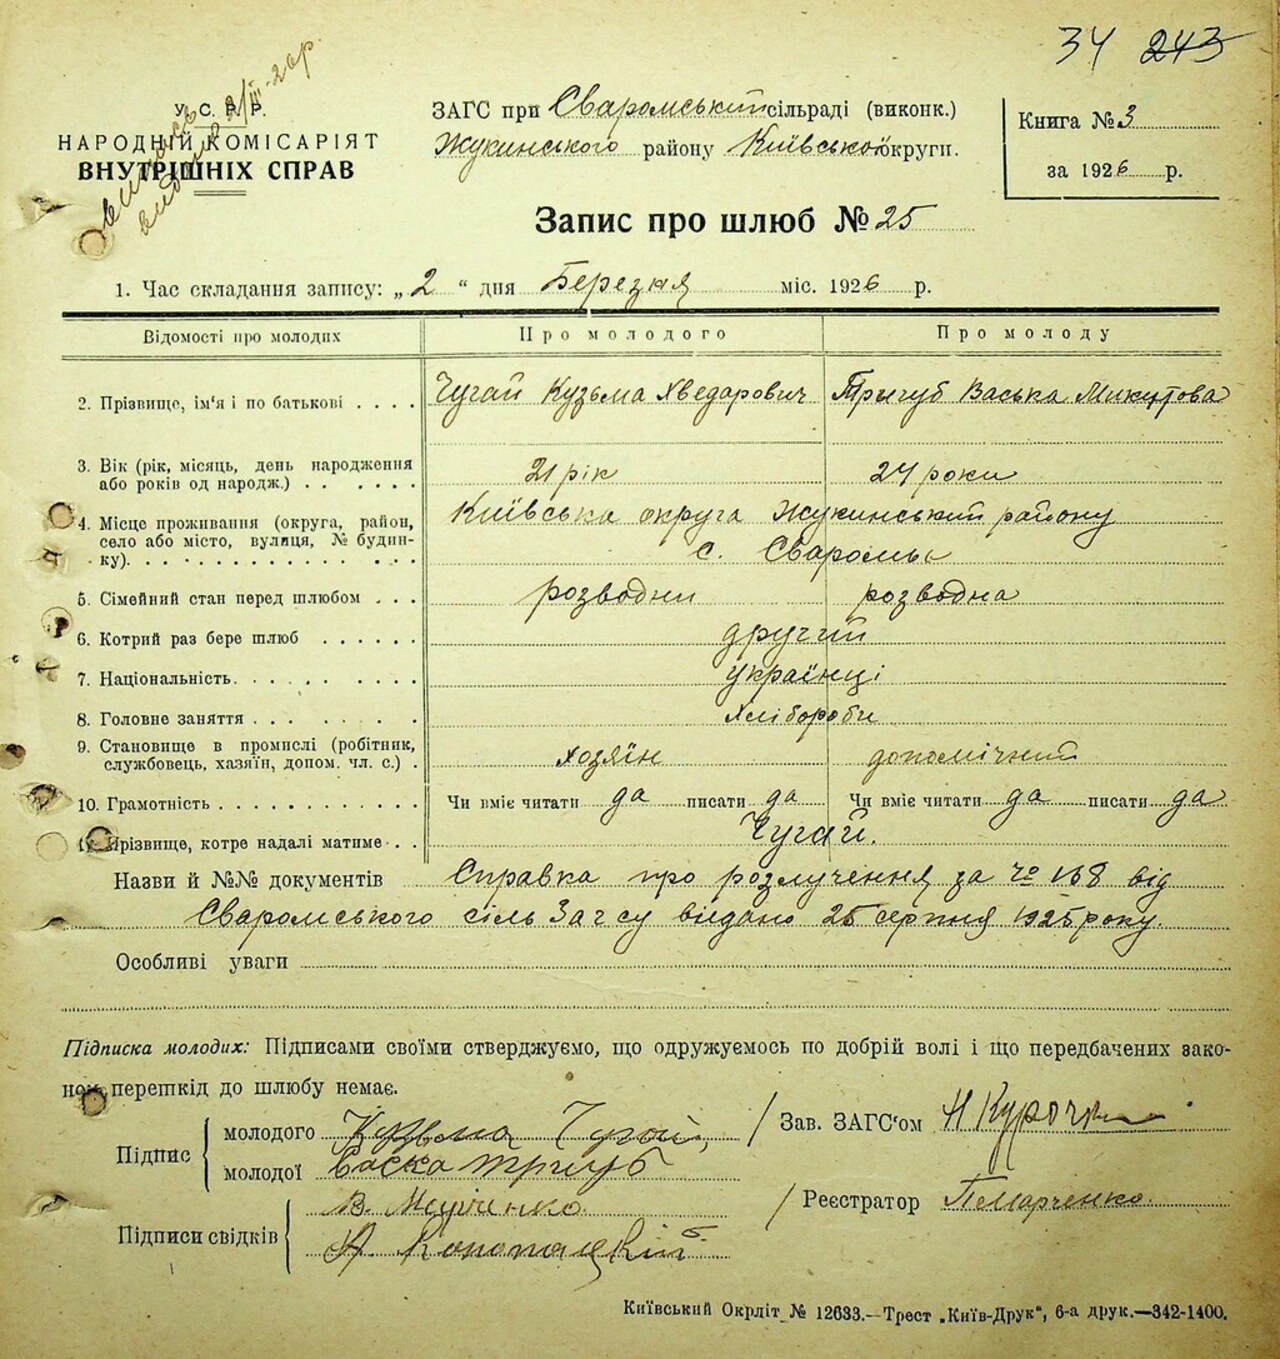 34 243
У. С. Р. Р.
НАРОДНІЙ КОМІСАРІЯТ
ВНУТРІШНІХ СПРАВ
ЗАГС при Сваромський сільраді (виконк.)
Жукинського району Київської округи.
Книга № 3
за 1926 р.
Запис про шлюб № 25
1. Час складання запису: „2“ дня Березня міс. 1926 р.
Відомості про молодих Про молодого Про молоду
2. Прізвище, ім'я і по батькові . . . . Чугай Кузьма Хведарович Тригуб Васька Микитова
3. Вік (рік, місяць, день народження 21 рік 24 роки
або років од народж.) . . . . . . .
4. Місце проживання (округа, район, Київська округа Жукинський району
село або місто, вулиця, № будин- с. Сваромье
ку). . . . . . . . . . . . . . .
5. Сімейний стан перед шлюбом . . . розводни розводна
6. Котрий раз бере шлюб . . . . . . другий
7. Національність. . . . . . . . . українці
8. Головне заняття . . . . . . . Хлібороби
9. Становище в промислі (робітник, хозяїн допомічний
службовець, хазяїн, допом. чл. с.) .
10. Грамотність . . . . . . . . . . . . Чи вміє читати да писати да Чи вміє читати да писати да
11. Прізвище, котре надалі матиме . . Чугай.
Назви й №№ документів Справка про розлучення за № 168 від
Сваромського сіль Загсу видано 25 серпня 1925 року.
Особливі уваги
Підписка молодих: Підписами своїми стверджуємо, що одружуємось по добрій волі і що передбачених зако-
ном перешкід до шлюбу немає.
Підпис
молодого Кузьма Чугай,
молодої Васка тригуб
Зав. ЗАГС'ом
Підписи свідків
Реєстратор П Марченко.
А. Конопацкій
Київський Окрліт № 12633.—Трест „Київ-Друк“, 6-а друк.—342-1400.